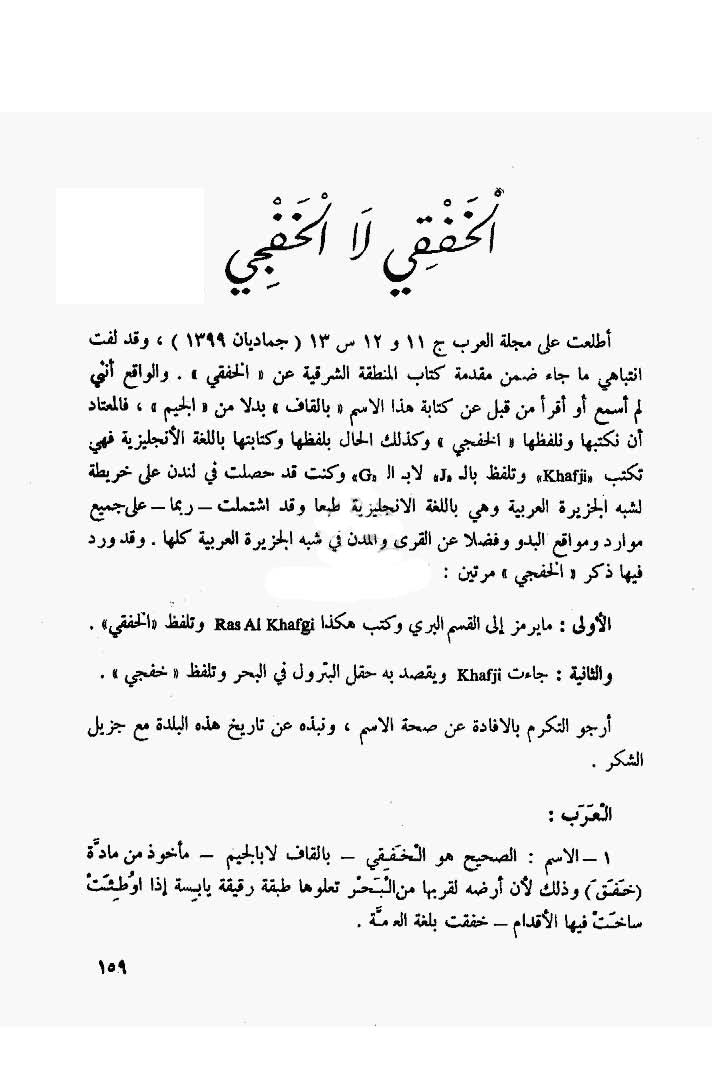 الْخَفْقِي لَا الْخَفْجِي
أطلعت على مجلة العرب ج ١١ و ١٢ س ١٣ ( جماديان ١٣٩٩ ) ، وقد لفت
انتباهي ما جاء ضمن مقدمة كتاب المنطقة الشرقية عن « الخفقي » . والواقع أنني
لم أسمع أو أقرأ من قبل عن كتابة هذا الاسم « بالقاف » بدلا من « الجيم » ، فالمعتاد
أن نكتبها ونلفظها « الخفجي » وكذلك الحال بلفظها وكتابتها باللغة الأنجليزية فهي
تكتب «Khafji» وتلفظ بالـ «J» لابـ الـ «G» وكنت قد حصلت في لندن على خريطة
لشبه الجزيرة العربية وهي باللغة الانجليزية طبعا وقد اشتملت – ربما – على جميع
موارد ومواقع البدو وفضلا عن القرى والمدن في شبه الجزيرة العربية كلها . وقد ورد
فيها ذكر « الخفجي » مرتين :
الأولى : مايرمز إلى القسم البري وكتب هكذا Ras Al Khafgi وتلفظ «الخفقي» .
والثانية : جاءت Khafji ويقصد به حقل البترول في البحر وتلفظ « خفجي » .
أرجو التكرم بالافادة عن صحة الاسم ، ونبذه عن تاريخ هذه البلدة مع جزيل
الشكر .
الْعَرَب :
١ – الاسم : الصحيح هو الْخَفْقِي – بالقاف لابالجيم – مأخوذ من مادَّة
(خَفَقَ) وذلك لأن أرضه لقربها من الْبَحْر تعلوها طبقة رقيقة يابِسة إذا اوُطِئَتْ
ساخَتْ فيها الأقدام – خفقت بلغة العامَّة .
١٥٩